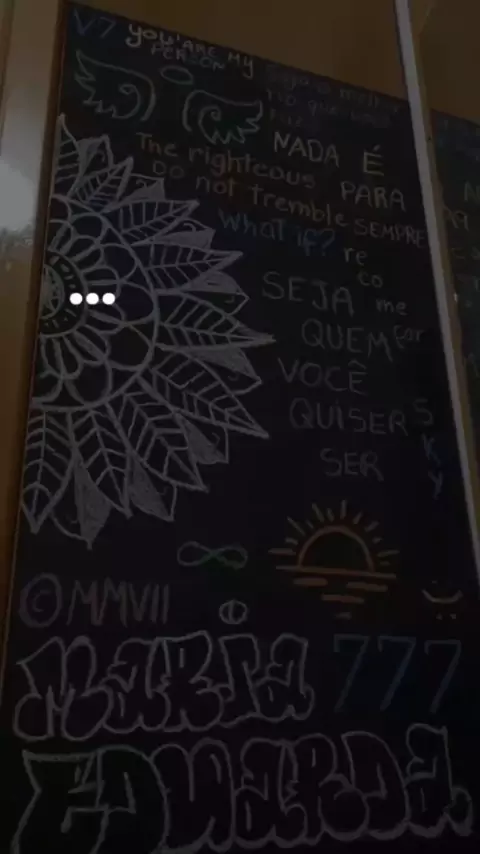 V7 YOU ARE MY
PERSON
NADA É
PARA
SEMPRE
The righteous
Do not tremble
What if?
re
co
me
çar
SEJA
QUEM
VOCÊ
QUISER
SER
SKY
©MMVII
MARIA
777
EDUARDA